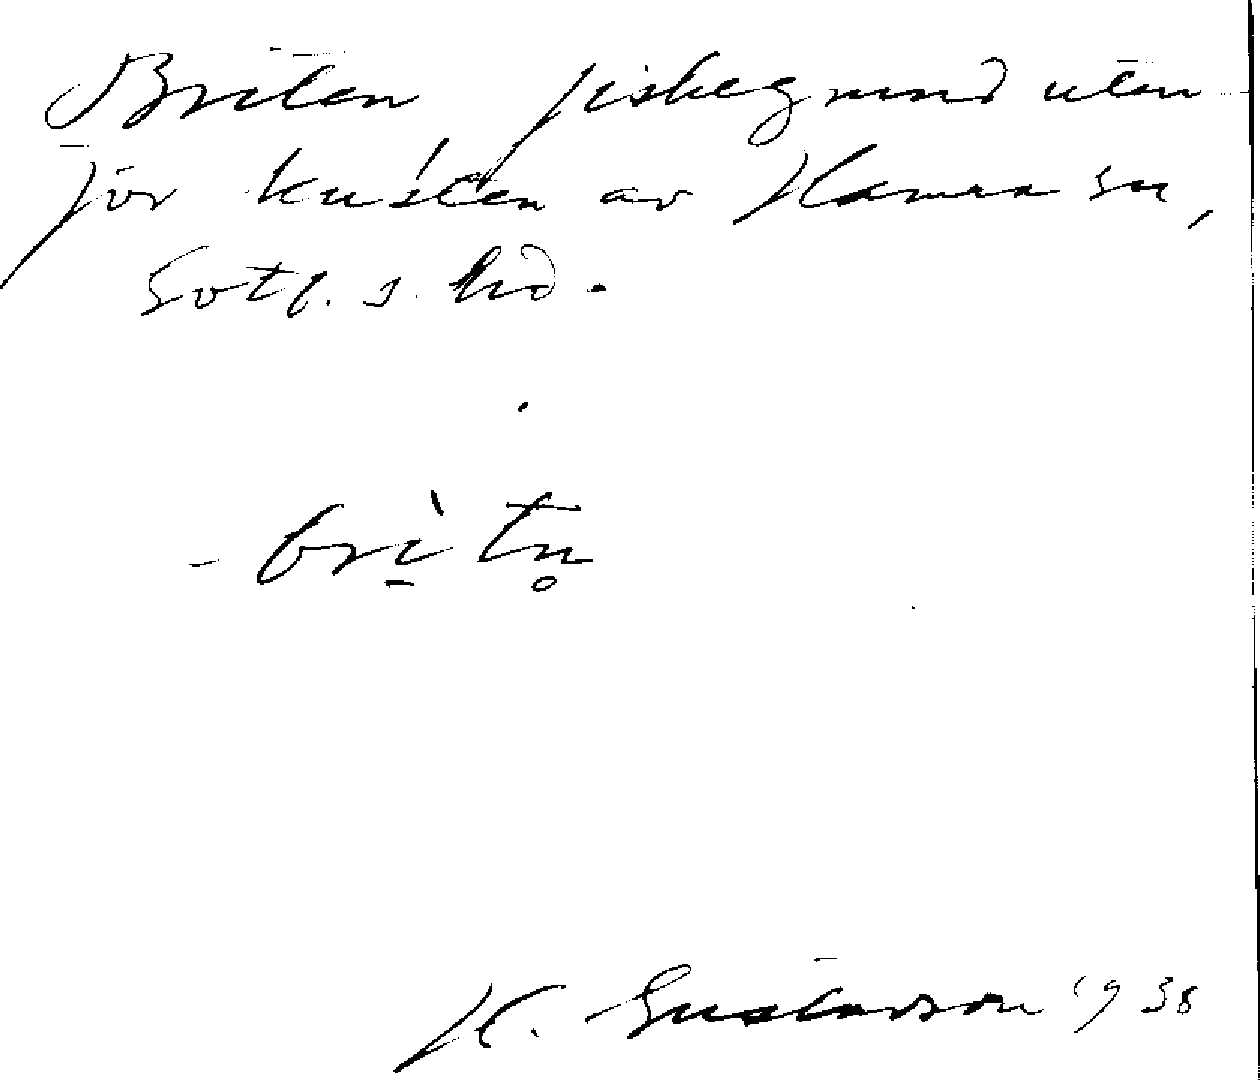 Briten, fiskegrund utan
för kusten av Hamra sn,
Gotl. s. hd.
- brì̱tn̥
H. Gustavson 1938